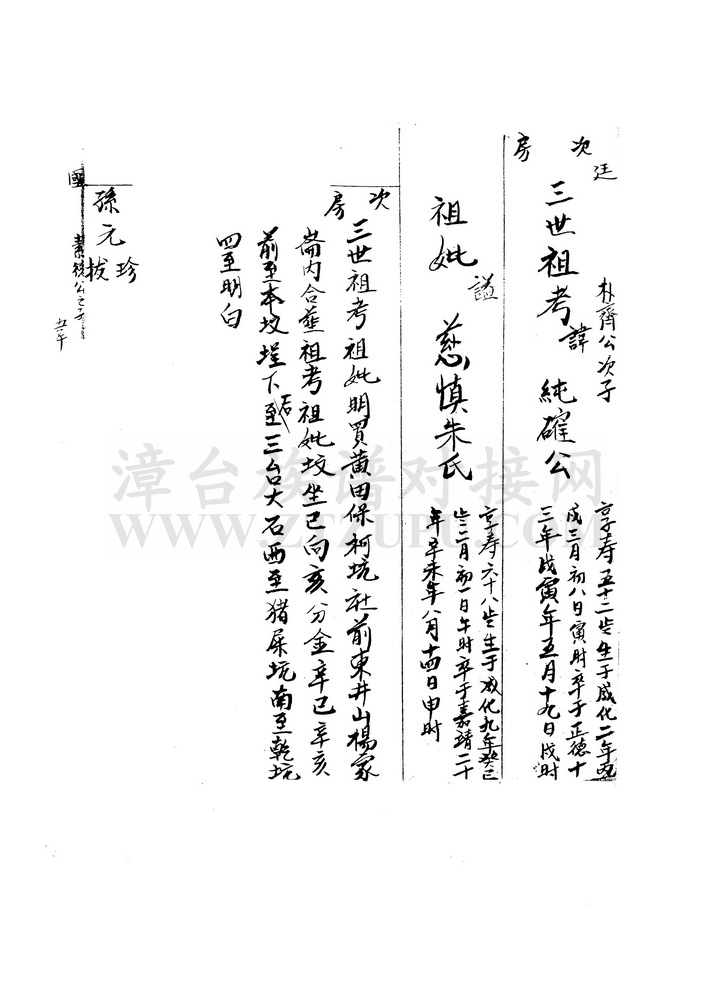 次房
廷
朴齊公次子
三世祖考諱純確公
享壽五十二岁生于成化二年丙
戌三月初八日寅时卒于正德十
三年戊寅年五月十九日戌时
祖妣謚慈慎朱氏
享寿六十八岁生于成化九年癸巳
岁二月初一日午时卒于嘉靖二十
年辛未年八月十四日申时
次房
三世祖考祖妣明買黃田保柯坑社前東井山楊家
崙内合葬祖考祖妣坟坐巳向亥分金辛巳辛亥
前至本坟埕下石至三台大石西至猪屎坑南至乾坑
四至明白
孫元珍
拔
漳台族谱对接网
WWW.ZTZUPU.COM